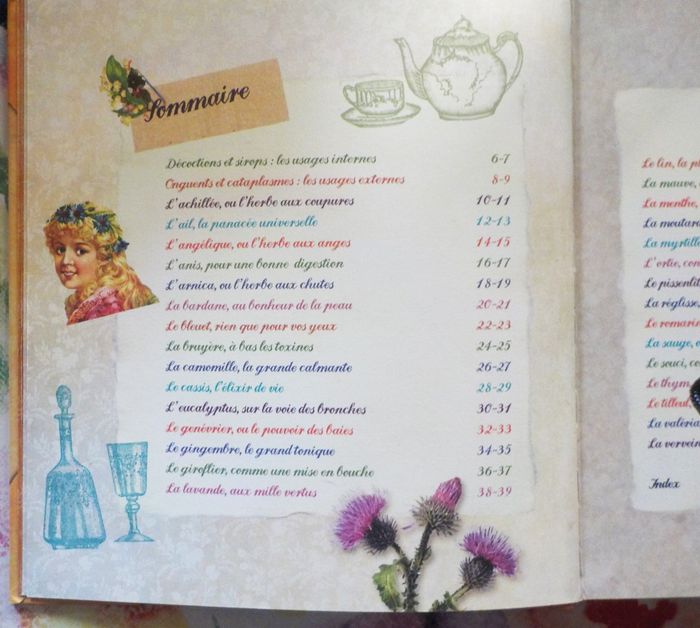 Sommaire
Décoctions et sirops : les usages internes 6-7
Onguents et cataplasmes : les usages externes 8-9
L'achillée, ou l'herbe aux coupures 10-11
L'ail, la panacée universelle 12-13
L'angélique, ou l'herbe aux anges 14-15
L'anis, pour une bonne digestion 16-17
L'arnica, ou l'herbe aux chutes 18-19
La bardane, au bonheur de la peau 20-21
Le bleuet, rien que pour vos yeux 22-23
La bruyère, à bas les toxines 24-25
La camomille, la grande calmante 26-27
Le cassis, l'élixir de vie 28-29
L'eucalyptus, sur la voie des bronches 30-31
Le genévrier, ou le pouvoir des baies 32-33
Le gingembre, le grand tonique 34-35
Le giroflier, comme une mise en bouche 36-37
La lavande, aux mille vertus 38-39
Le lin, la
La mauve,
La menthe,
La
La
L'ortie,
Le
La réglisse,
Le
La sauge,
Le souci,
Le thym,
Le tilleul,
La
La
Index